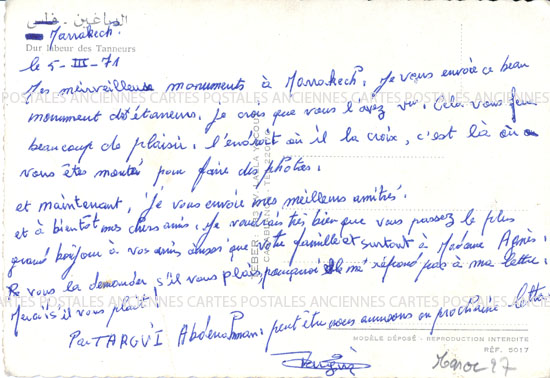 الصباغين - فاس
Marrakech.
Dur labeur des Tanneurs
le 5-III-71
Mes meirveilleuse monuments à Marrakech, Je vous envoie ce beau
monument des étaneurs. Je crois que vous l'avez vu. Cela vous fera
beaucoup de plaisir. l'endroit où il la croix, c'est là où
vous êtes monté pour faire des photos.
et maintenant, Je vous envoie mes meilleurs amitiés.
et à bientôt mes chers amis. Je voudrais très bien que vous passez le plus
grand bonjour à vos amis ainsi que votre famille et surtout à Madame Agnès.
Je vous la demander s'il vous plaît pourquoi elle m' répond pas à ma lettre.
Merci s'il vous plaît!
Par TARGUI Abderrahman. peut être nous aurons en prochaine lettre
CARTES POSTALES ANCIENNES CARTES POSTALES ANCIENNES CARTES POSTALES
MODÈLE DÉPOSÉ - REPRODUCTION INTERDITE
RÉF. 5017
Maroc 27